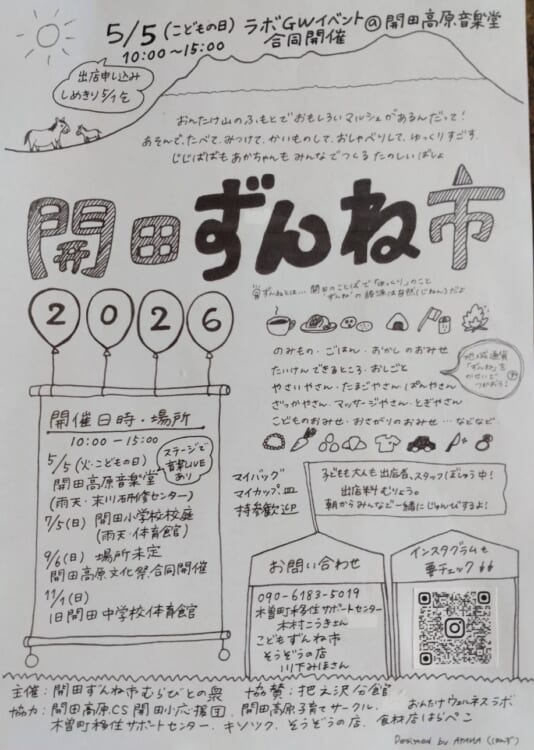 5/5(こどもの日) ラボGWイベント@開田高原音楽堂
10:00〜15:00 合同開催
出店申し込み
しめきり5/1迄
おんたけ山のふもとでおもしろいマルシェがあるんだって!
あそんで、たべて、みつけて、かいものして、おしゃべりして、ゆっくりすごす。
じじばばもあかちゃんもみんなでつくるたのしいばしょ
開田ずんね市
ずんねとは…開田のことばで「ゆっくり」のこと
"ずんね"の語源は自然(じねん)だよ
2026
のみもの・ごはん・おかしのおみせ
たいけんできるところ・おしごと
やさいやさん・たまごやさん・ぱんやさん
ざっかやさん・マッサージやさん・とぎやさん
こどものおみせ・おさがりのおみせ…などなど
地域通貨
「ずんね」を
かせいで
つかおう!
開催日時・場所
10:00-15:00
5/5(火・こどもの日)
開田高原音楽堂
(雨天・末川研修センター)
ステージで
音楽LIVE
あり
7/5(日) 開田小学校校庭
(雨天・体育館)
9/6(日) 場所未定
開田高原文化祭合同開催
11/1(日)
旧開田中学校体育館
マイバッグ
マイカップ・皿
持参歓迎
子どもも大人も出店者、スタッフぼしゅう中!
出店料むりょう。
朝からみんなと一緒にじゅんびするよ!
お問い合わせ
090-6183-5019
木曽町移住サポートセンター
木村こうきさん
こどもずんね市
そうぞうの店
川下みほさん
インスタグラムも
要チェック
主催:開田ずんね市むらびとの奥 協賛:把之沢分館
協力:開田高原CS 開田小応援団、開田高原子育てサークル、おんたけウェルネスラボ
木曽町移住サポートセンター、キソツク、そうぞうの店、食材店はらぺこ
Designed by